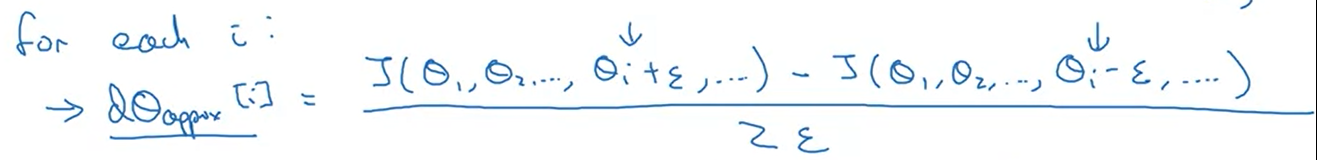 for each i:
→ dθapprox[i] = J(θ₁, θ₂, ..., θᵢ+ε, ...) - J(θ₁, θ₂, ..., θᵢ-ε, ....) / 2ε